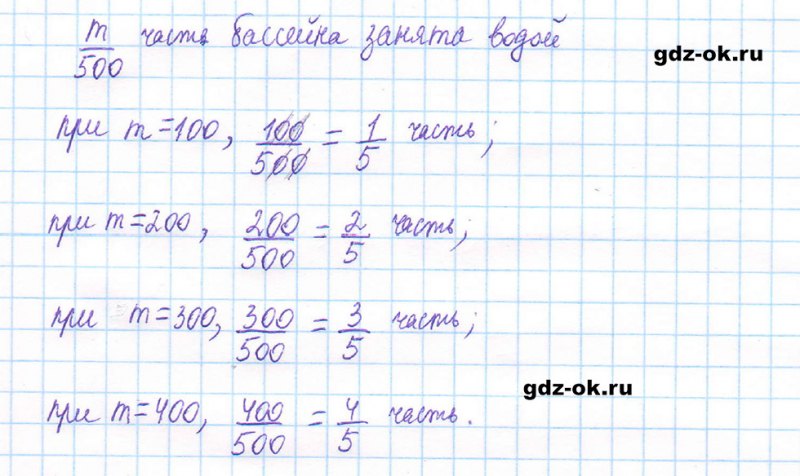 m/500 часть бассейна занята водой
gdz-ok.ru
при m=100, 100/500 = 1/5 часть;
при m=200, 200/500 = 2/5 часть;
при m=300, 300/500 = 3/5 часть;
gdz-ok.ru
при m=400, 400/500 = 4/5 часть.